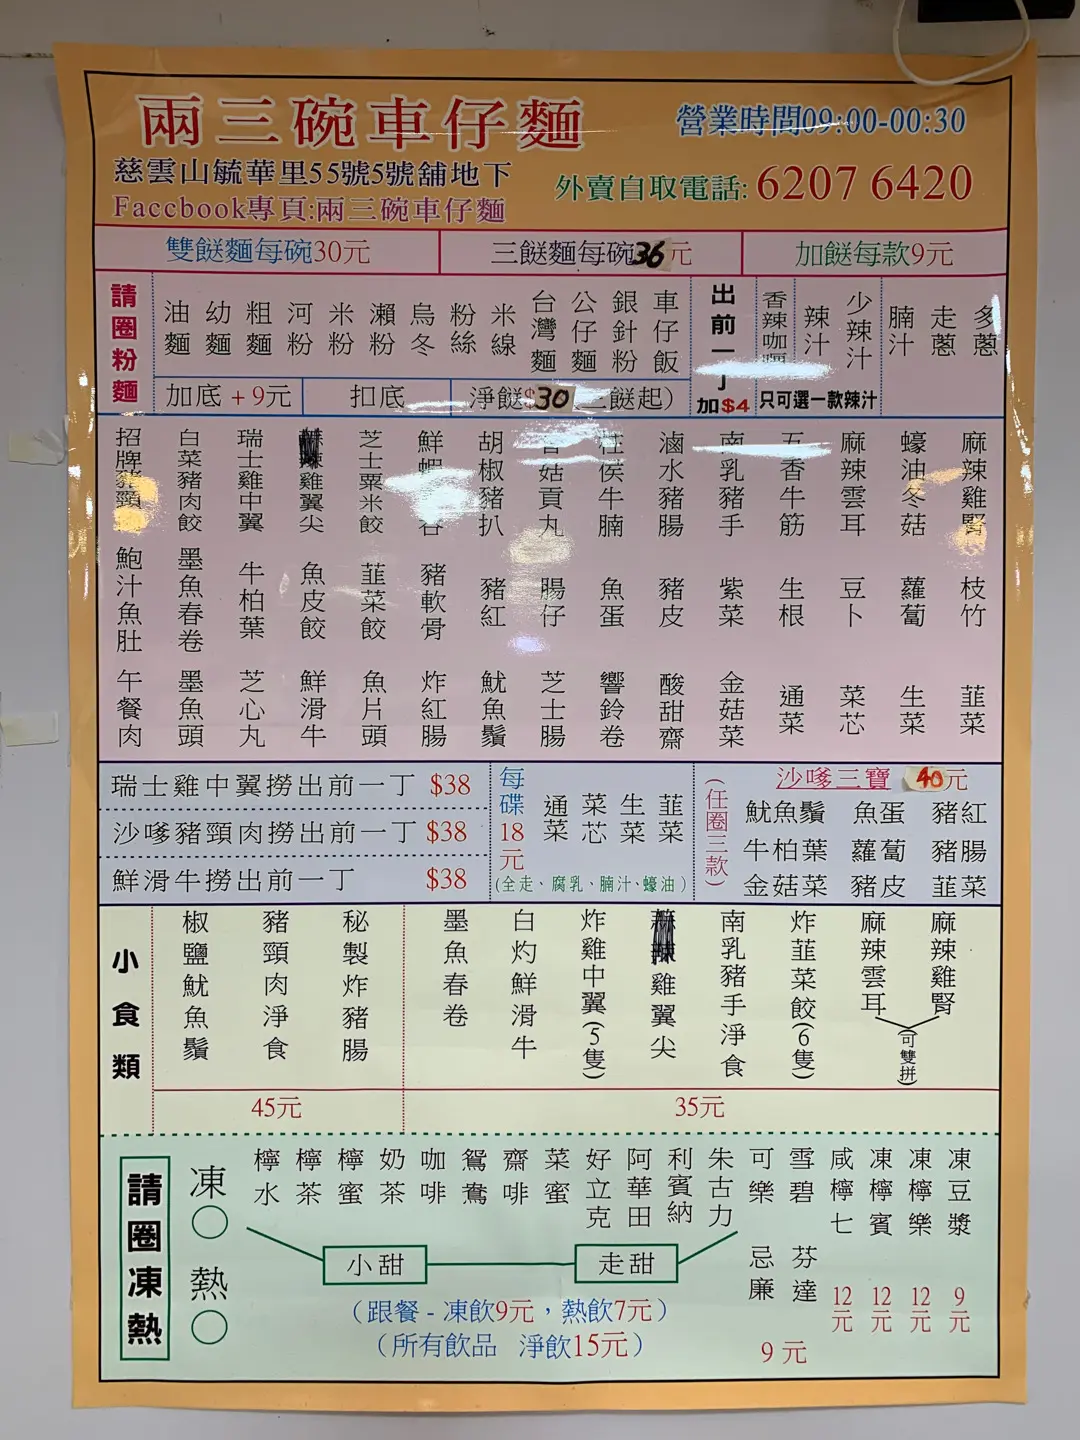 兩三碗車仔麵
營業時間09:00-00:30
慈雲山毓華里55號5號舖地下
外賣自取電話: 6207 6420
Faccbook專頁:兩三碗車仔麵
雙餸麵每碗30元
三餸麵每碗36元
加餸每款9元
請圈粉麵
油麵
幼麵
粗麵
河粉
米粉
瀨粉
烏冬
粉絲
米線
台灣麵
公仔麵
銀針粉
車仔飯
出前一丁
加$4
香辣咖喱
辣汁
少辣汁
只可選一款辣汁
腩汁
走蔥
多蔥
加底 +9元
扣底
淨餸$30 二餸起)
招牌豬頸
白菜豬肉餃
瑞士雞中翼
雞翼尖
芝士粟米餃
鮮蝦
胡椒豬扒
菇貢丸
柱侯牛腩
滷水豬腸
南乳豬手
五香牛筋
麻辣雲耳
蠔油冬菇
麻辣雞腎
鮑汁魚肚
墨魚春卷
牛柏葉
魚皮餃
韮菜餃
豬軟骨
豬紅
腸仔
魚蛋
豬皮
紫菜
生根
豆卜
蘿蔔
枝竹
午餐肉
墨魚頭
芝心丸
鮮滑牛
魚片頭
炸紅腸
魷魚鬚
芝士腸
響鈴卷
酸甜齋
金菇菜
通菜
菜芯
生菜
韮菜
瑞士雞中翼撈出前一丁 $38
沙嗲豬頸肉撈出前一丁 $38
鮮滑牛撈出前一丁 $38
每碟18元
通菜
菜芯
生菜
韮菜
(全走、腐乳、腩汁、蠔油)
(任圈三款)
沙嗲三寶 40元
魷魚鬚 魚蛋 豬紅
牛柏葉 蘿蔔 豬腸
金菇菜 豬皮 韮菜
小食類
椒鹽魷魚鬚
豬頸肉淨食
秘製炸豬腸
45元
墨魚春卷
白灼鮮滑牛
炸雞中翼(5隻)
雞翼尖
南乳豬手淨食
炸韮菜餃(6隻)
麻辣雲耳
麻辣雞腎
(可雙拼)
35元
請圈凍熱
凍○
熱○
檸水
檸茶
檸蜜
奶茶
咖啡
鴛鴦
齋啡
菜蜜
好立克
阿華田
利賓納
朱古力
小甜
走甜
(跟餐 - 凍飲9元，熱飲7元)
(所有飲品 淨飲15元)
可樂
雪碧
忌廉
芬達
9元
咸檸七
12元
凍檸賓
12元
凍檸樂
12元
凍豆漿
9元